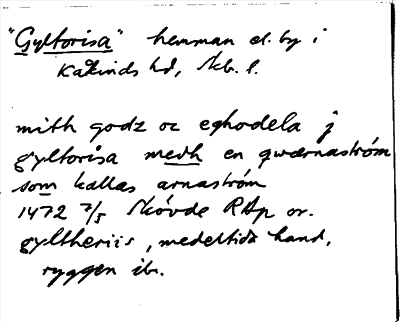 "Gyltorisa" hemman el. by i
Kåkinds hd, Skb. l.
mith godz oc eghodela j
gyltorisa medh en qwærnaström
som kallas arnaström
1472 7/5 Skövde RAp or.
gyltheriis, medeltida hand,
ryggen ib.